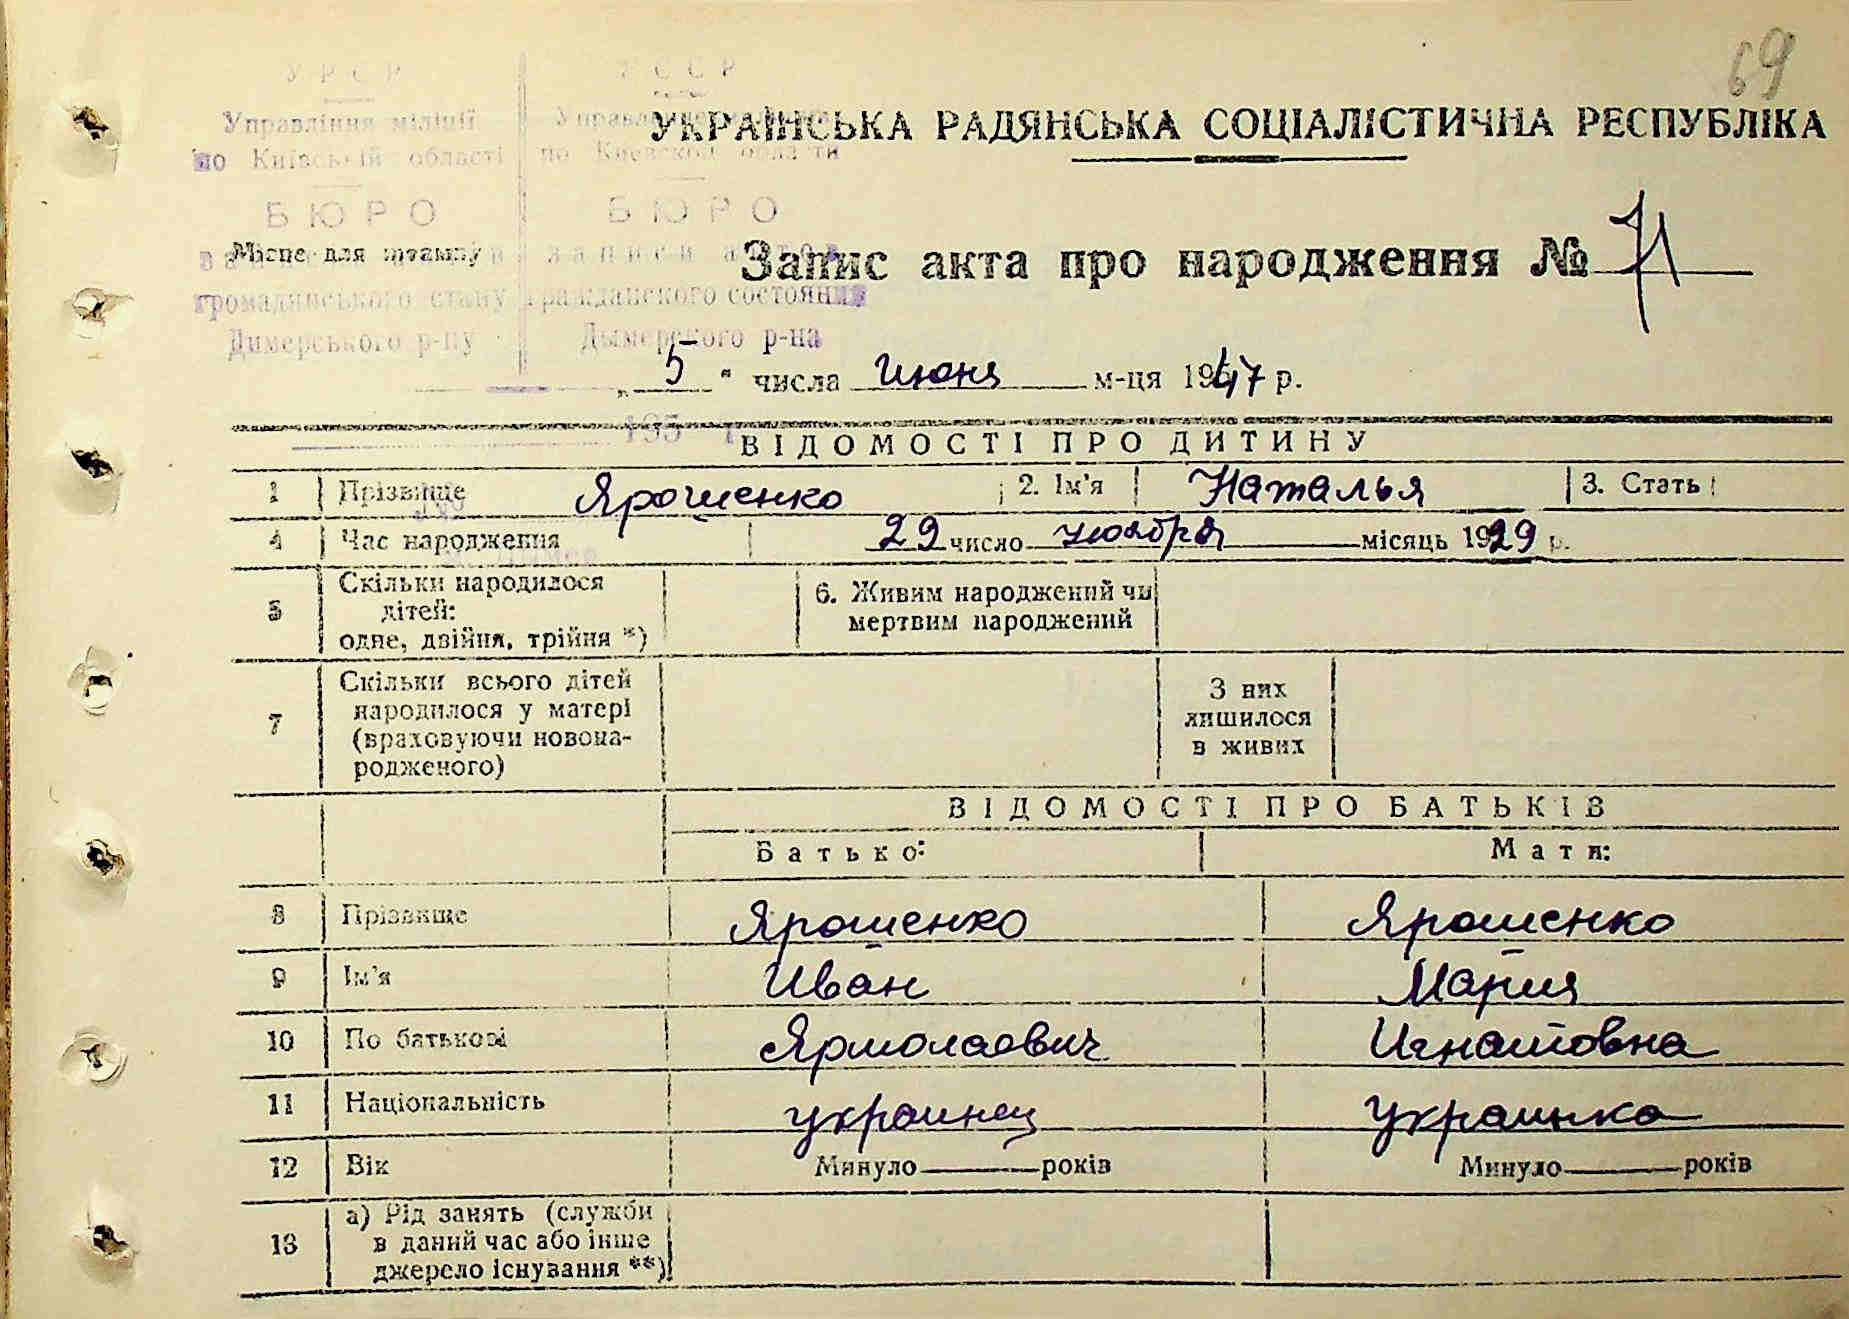 69
УРСР УССР
Управління міліції Управл
по Київській області по Киевской области
УКРАЇНСЬКА РАДЯНСЬКА СОЦІАЛІСТИЧНА РЕСПУБЛІКА
БЮРО БЮРО
Місце для штампу записи актов
Запис акта про народження № 71
громадянського стану гражданского состояния
Димерського р-ну Дымерского р-на
„ 5 " числа июня м-ця 1947 р.
195 г.
ВІДОМОСТІ ПРО ДИТИНУ
1 Прізвище Ярошенко 2. Ім'я Наталья 3. Стать
4 Час народження 29 число ноября місяць 1929 р.
5 Скільки народилося
дітей:
одне, двійня, трійня *)
6. Живим народжений чи
мертвим народжений
7 Скільки всього дітей
народилося у матері
(враховуючи новона-
родженого)
З них
лишилося
в живих
ВІДОМОСТІ ПРО БАТЬКІВ
Батько: Мати:
8 Прізвище Ярошенко Ярошенко
9 Ім'я Иван Мария
10 По батькові Ярмолаевич Игнатовна
11 Національність украинец украинка
12 Вік Минуло років Минуло років
13 а) Рід занять (служби
в даний час або інше
джерело існування **)